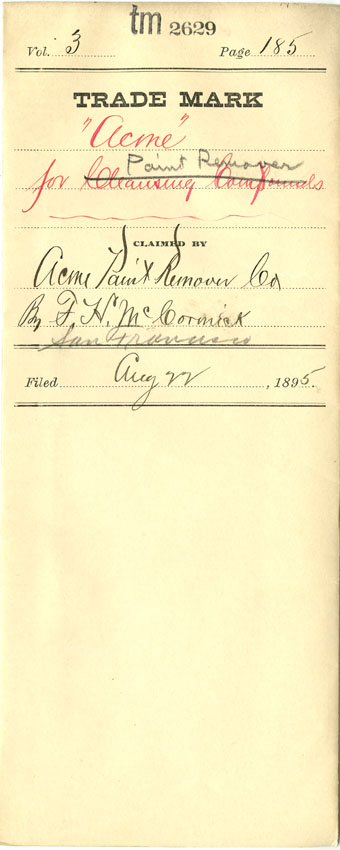 tm 2629
Vol. 3 Page 185
TRADE MARK
"Acme"
Paint Remover
for Cleansing Compounds
CLAIMED BY
Acme Paint Remover Co
By F. H. McCormick
San Francisco
Filed Aug 22, 1895.